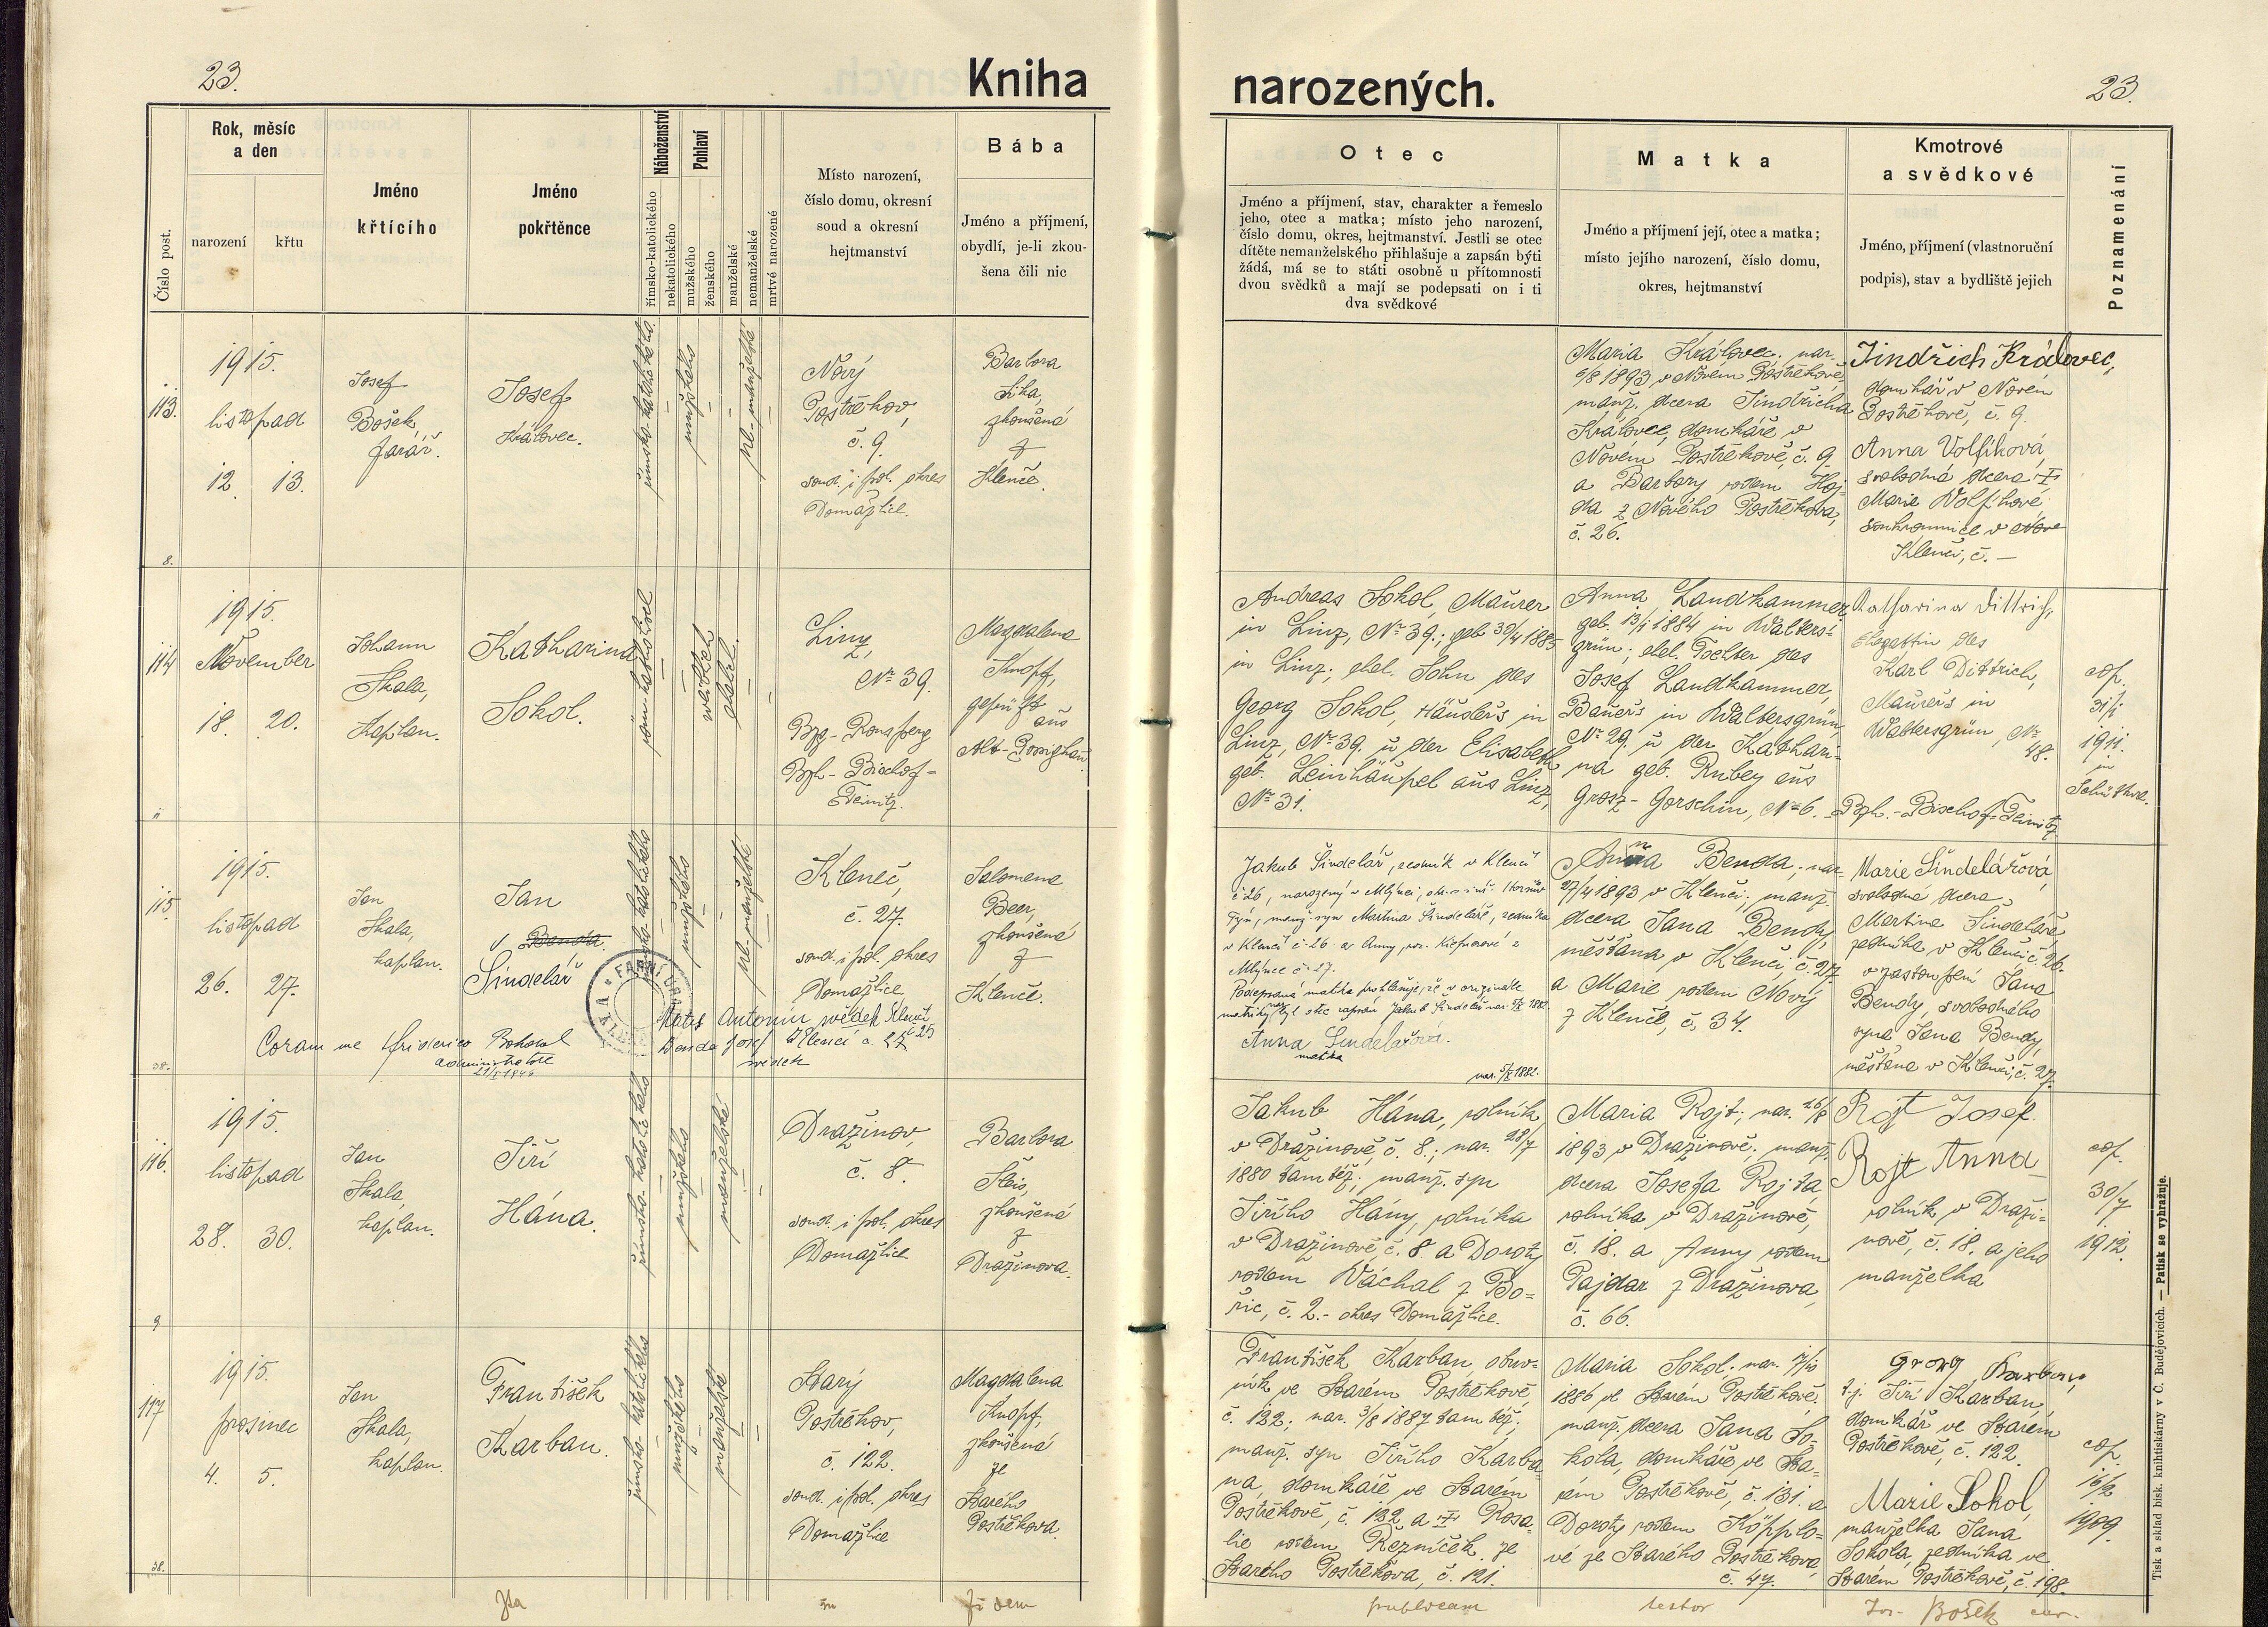 23.
Kniha
narozených.
23.
Číslo post.
Rok, měsíc
a den
narození
křtu
Jméno
křtícího
Jméno
pokřtěnce
Náboženství
římsko-katolického
nekatolického
Pohlaví
mužského
ženského
manželské
nemanželské
mrtvé narozené
Místo narození,
číslo domu, okresní
soud a okresní
hejtmanství
Bába
Jméno a příjmení,
obydlí, je-li zkou-
šena čili nic
Otec
Jméno a příjmení, stav, charakter a řemeslo
jeho, otec a matka; místo jeho narození,
číslo domu, okres, hejtmanství. Jestli se otec
dítěte nemanželského přihlašuje a zapsán býti
žádá, má se to státi osobně u přítomnosti
dvou svědků a mají se podepsati on i ti
dva svědkové
Matka
Jméno a příjmení její, otec a matka;
místo jejího narození, číslo domu,
okres, hejtmanství
Kmotrové
a svědkové
Jméno, příjmení (vlastnoruční
podpis), stav a bydliště jejich
Poznamenání
113.
1915.
listopad
12. 13.
Josef
Bošek,
farář.
Josef
Královec.
římsko-katolického
mužského
ne-manželské
Nový
Postřekov,
č. 9.
soud. i pol. okres
Domažlice.
Barbora
zkoušená
z
Klenče.
Maria Královec, nar.
6/8 1893 v Novém Postřekově,
manž. dcera Jindřicha
Královec, domkáře v
Novém Postřekově, č. 9
a Barbory rodem Haj-
da z Nového Postřekova,
č. 26.
Jindřich Královec,
domkář v Novém
Postřekově, č. 9.
Anna Volfíková,
svobodná dcera †
Marie Volfíkové
soukromnice v
Klenči, č. —
8.
114
1915.
November
18. 20.
Johann
Skala,
Kaplan.
Katharina
Sokol.
röm. katholisch
weiblich
ehelich.
Linz,
Nr 39.
Bzg-Ronsperg
Bzh-Bischof-
Teinitz.
Magdalena
Knopf,
geprüft
aus
Alt-Possighau
Andreas Sokol, Maurer
in Linz, Nr 39.; geb 30/4 1885
in Linz; ehel. Sohn des
Georg Sokol, Häuslers in
Linz, Nr 39. u der Elisabeth
geb. Leinhäupel aus Linz,
Nr 31.
Anna Landkammer,
geb. 13/1 1884 in Walters-
grün; ehel. Tochter des
Josef Landkammer,
Bauers in Waltersgrün,
Nr 29. u der Kathari-
na geb. Rubey aus
Grosz-Gorschin, Nr 6. Bzh.-Bischof-Teinitz
Katharina Dittrich,
Ehegattin des
Karl Dittrich,
Maurers in
Waltersgrün, Nr
48.
cop.
31/1
1911.
in
11
115
1915.
listopad
26. 27.
Jan
Skala,
kaplan.
Jan
Benda.
Šindelář
římsko-katolického
mužského
ne-manželské
Klenče,
č. 27.
soud. i pol. okres
Domažlice
Salomena
Beer,
zkoušená
z
Klenče.
Antonín svědek Klenčí
č 25
Benda Josef Klenčí č. 27
svědek
Coram me Friderico Bohatal
administratore
1946
Jakub Šindelář, zedník v Klenčí
č 26, narozený v Mlýnci,
Týn, manž. syn Martina Šindeláře, zedníka
v Klenčí č 26 a Anny, roz. Kiefnerové z
Mlýnce č. 17.
Podepsaná matka prohlašuje, že v originále
matriky byl otec zapsán Jakub Šindelář nar. 5/X 1882.
Anna Šindelářová.
matka
nar. 5/X 1882.
Anna Benda; nar.
27/4 1893 v Klenči; manž.
dcera Jana Bendy,
měšťana v Klenči, č. 27.
a Marie rodem Nový
z Klenče, č. 34.
Marie Šindelářová,
svobodná dcera
Martina Šindeláře,
zedníka v Klenči č. 26.
v zastoupení Jana
Bendy, svobodného
syna Jana Bendy,
měšťana v Klenči, č. 27.
38.
116.
1915.
listopad
28. 30.
Jan
Skala,
kaplan.
Jiří
Hána.
římsko-katolického
mužského
manželské
Dražinov,
č. 8.
soud. i pol. okres
Domažlice
Barbora
Šteis,
zkoušená
z
Dražinova.
Jakub Hána, rolník
v Dražinově, č. 8.; nar. 28/7
1880 tamtéž; manž. syn
Jiřího Hány, rolníka
v Dražinově, č. 8. a Doroty
rodem Váchal z Bo-
řic, č. 2.- okres Domažlice.
Maria Rojt; nar. 26/8
1893 v Dražinově; manž.
dcera Josefa Rojta,
rolníka v Dražinově,
č. 18. a Anny rodem
Pajdar z Dražinova,
č. 66.
Rojt Josef.
Rojt Anna
rolník v Draži-
nově, č. 18. a jeho
manželka
cop.
30/7
1912.
9
117
1915.
prosinec
4. 5.
Jan
Skala,
kaplan.
František
Karban.
římsko-katolického
mužského
manželské
Starý
Postřekov,
č. 122.
soud. i pol. okres
Domažlice
Magdalena
Knopf,
zkoušená
ze
Starého
Postřekova.
František Karban, obuv-
ník ve Starém Postřekově,
č. 122; nar. 3/8 1887 tamtéž;
manž. syn Jiřího Karba-
na, domkáře ve Starém
Postřekově, č. 122 a † Rosa-
lie rodem Řezníček ze
Starého Postřekova, č. 121.
Maria Sokol, nar. 7/10
1886 ve Starém Postřekově;
manž. dcera Jana So-
kola, domkáře ve Sta-
rém Postřekově, č. 131. a
Doroty rodem Köpplo-
vé ze Starého Postřekova,
č. 47.
Georg Karban,
t.j. Jiří Karban,
domkář ve Starém
Postřekově, č. 122.
Marie Sokol,
manželka Jana
Sokola, zedníka ve
Starém Postřekově, č. 198.
cop.
16/2
1909.
38.
Ita in fidem
publicam testor Jos. Bošek cur.
Tisk a sklad bisk. knihtiskárny v Č. Budějovicích. — Patisk se vyhražuje.